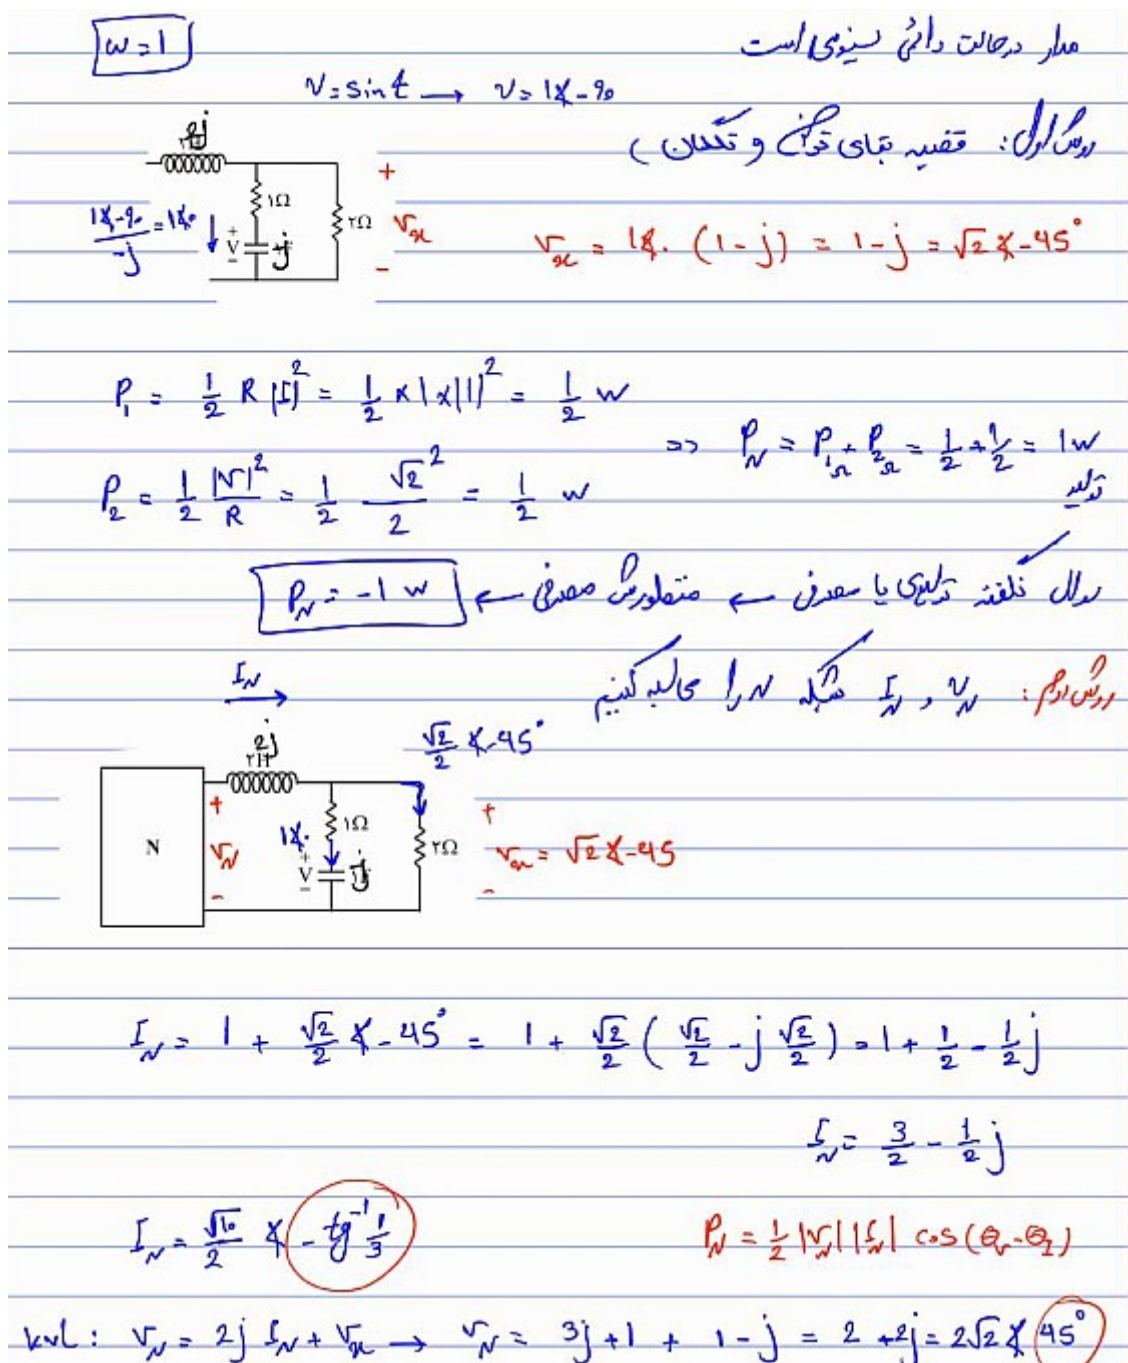 ω=1
مدار در حالت دائمی سینوسی است
v=sin t → v=1∡-90
روش اول: قضیه بقای توان (تلگان)
2j
1∡-90/-j = 1∡0
۱Ω
۲Ω
+
V
-
-j
+
Vx
-
Vx = 1∡0 (1-j) = 1-j = √2∡-45°
P1 = 1/2 R|I|² = 1/2 × 1 × |1|² = 1/2 w
P2 = 1/2 |V|²/R = 1/2 √2²/2 = 1/2 w
=> PN = P1Ω + P2Ω = 1/2 + 1/2 = 1w
تولید
سوال نگفته تولیدی یا مصرفی ← منظورش مصرفی ← PN = -1 w
روش دوم: VN و IN شبکه N را محاسبه کنیم
IN
√2/2 ∡-45°
2j
۲H
N
+
VN
-
1∡0
۱Ω
+
V
-
-j
۲Ω
+
Vx = √2∡-45
-
IN = 1 + √2/2 ∡-45° = 1 + √2/2 (√2/2 - j √2/2) = 1 + 1/2 - 1/2 j
IN = 3/2 - 1/2 j
IN = √10/2 ∡ -tg⁻¹ 1/3
PN = 1/2 |VN| |IN| cos(θv-θI)
kvl: VN = 2j IN + Vx → VN = 3j+1 + 1-j = 2+2j = 2√2∡45°